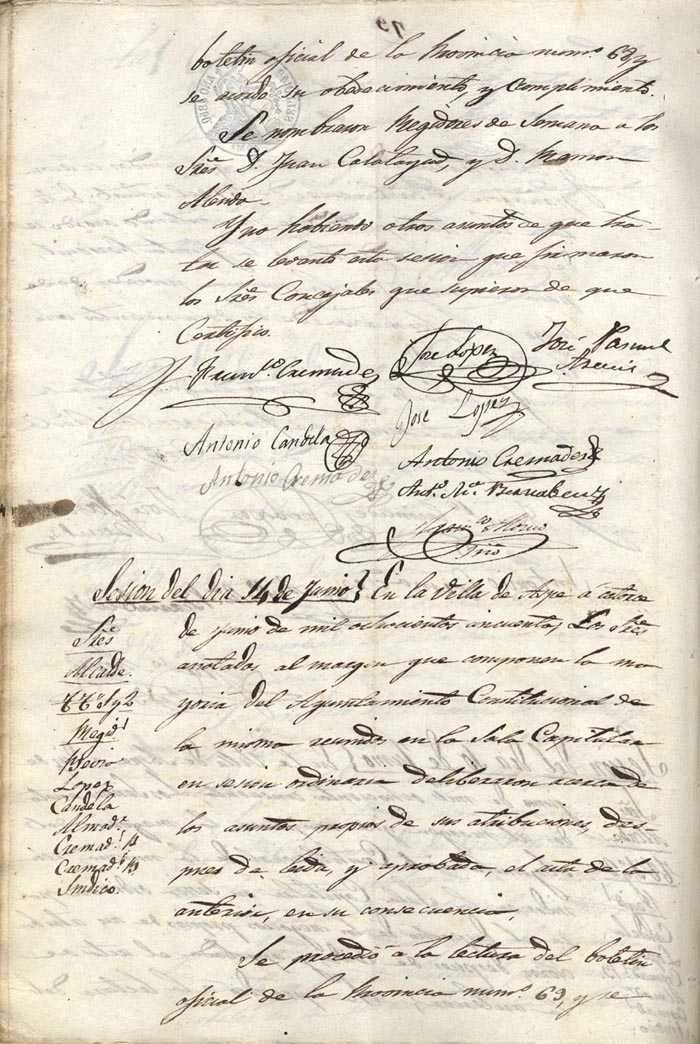 boletin oficial de la Provincia num.º 68, y
se acordo su obedecimiento, y cumplimiento.
Se nombraron Regidores de Semana a los
Sres. D. Juan Calatayud, y D. Ramon
Y no habiendo otros asuntos de que tra-
tar se levantó esta sesion que firmaron
los Sres. Concejales que supieron de que
Certifico.
Fran.co Cremades
Jose Lopez
José Pascual
Jose Lopez
Antonio Candela
Antonio Cremades
Antonio Cremades
Ant.º M.ª Bernabeu
Srio
Sesion del dia 14 de Junio} En la Villa de Aspe a catorce
de Junio de mil ochocientos cincuenta, Los Sres
anotados al margen que componen la ma-
yoria del Ayuntamiento Constitusional de
la misma reunidos en la Sala Capitular
en sesion ordinaria deliberaron acerca de
los asuntos propios de sus atribuciones, des-
pues de leida, y aprobada, el acta de la
anterior, en su consecuencia.
Sres
Alcalde.
Ttes 1 y 2
Regid.s
Lopez
Candela
Almod.r
Cremad.s 11
Cremad.s 13
Sindico.
Se procedió a la lectura del boletin
oficial de la Provincia num.º 69, y se